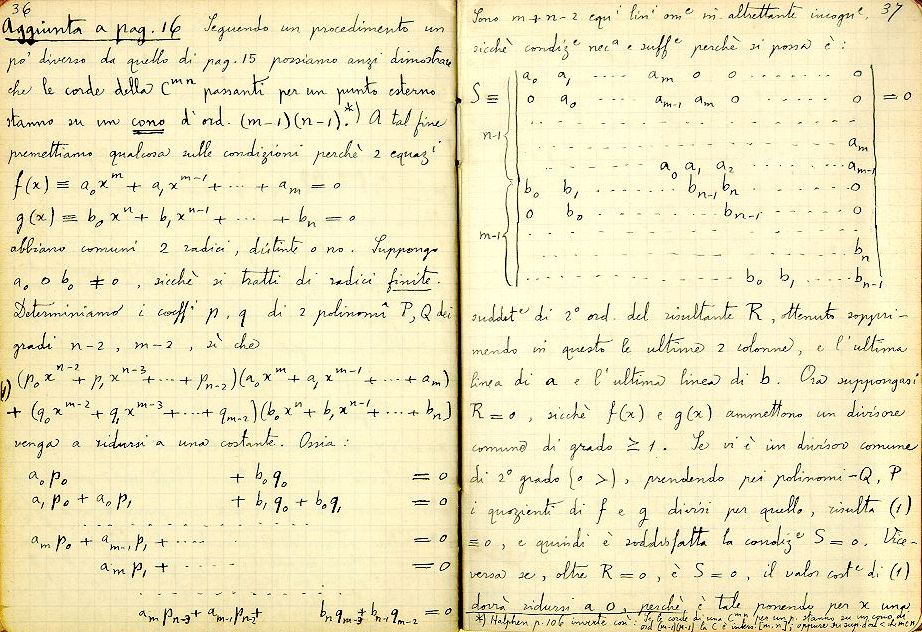 36
Aggiunta a pag. 16 Seguendo un procedimento un
po' diverso da quello di pag. 15 possiamo anzi dimostrare
che le corde della C^mn passanti per un punto esterno
stanno su un cono d'ord. (m-1)(n-1).*) A tal fine
premettiamo qualcosa sulle condizioni perchè 2 equaz^i
f(x) ≡ a₀x^m + a₁x^(m-1) + ... + a_m = 0
g(x) ≡ b₀x^n + b₁x^(n-1) + ... + b_n = 0
abbiano comuni 2 radici, distinte o no. Suppongo
a₀ o b₀ ≠ 0, sicchè si tratti di radici finite.
Determiniamo i coeff^i p, q di 2 polinomî P, Q dei
gradi n-2, m-2, sì che
1) (p₀x^(n-2) + p₁x^(n-3) + ... + p_(n-2))(a₀x^m + a₁x^(m-1) + ... + a_m)
+ (q₀x^(m-2) + q₁x^(m-3) + ... + q_(m-2))(b₀x^n + b₁x^(n-1) + ... + b_n)
venga a ridursi a una costante. Ossia:
a₀p₀ + b₀q₀ = 0
a₁p₀ + a₀p₁ + b₁q₀ + b₀q₁ = 0
..................
a_m p₀ + a_(m-1) p₁ + ..... = 0
a_m p₁ + ..... = 0
..................
a_m p_(n-3) + a_(m-1) p_(n-2) + b_n q_(m-3) + b_(n-1) q_(m-2) = 0
37
Sono m+n-2 equ^i lin^i om^e in altrettante incogn^e,
sicchè condiz^e nec^a e suff^e perchè si possa è:
a₀ a₁ .... a_m 0 0 ....... 0
S ≡ 0 a₀ .... a_(m-1) a_m 0 ....... 0 = 0
n-1 ..................
.................. a_m
a₀ a₁ a₂ ....... a_(m-1)
b₀ b₁ ....... b_(n-1) b_n ....... 0
0 b₀ ....... b_(n-1) ....... 0
m-1 ..................
.................. b_n
.................. b₀ b₁ .... b_(n-1)
suddet^e di 2° ord. del risultante R, ottenuto soppri-
mendo in questo le ultime 2 colonne, e l'ultima
linea di a e l'ultima linea di b. Ora suppongasi
R=0, sicchè f(x) e g(x) ammettono un divisore
comune di grado ≥ 1. Se vi è un divisor comune
di 2° grado (o >), prendendo pei polinomi -Q, P
i quozienti di f e g divisi per quello, risulta (1)
≡ 0, e quindi è soddisfatta la condiz^e S=0. Vice-
versa se, oltre R=0, è S=0, il valor cost^e di (1)
dovrà ridursi a 0, perchè è tale ponendo per x una
*) Halphen p. 106 inverte così: Se le corde di una C^mn per un p. stanno su un cono di
ord (m-1)(n-1) la C è inters. [m, n]; oppure su sup. d'ord <